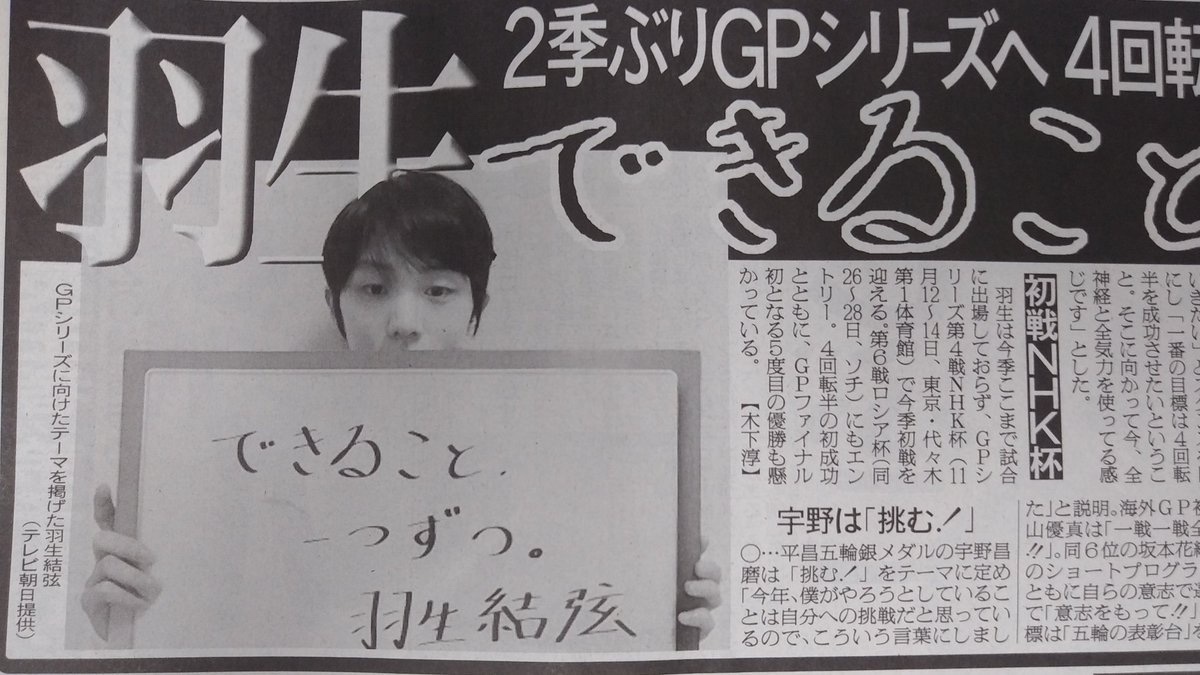 羽生
2季ぶりGPシリーズへ 4回転
できること
できること、
一つずつ。
羽生結弦
GPシリーズに向けたテーマを掲げた羽生結弦
(テレビ朝日提供)
にし「一番の目標は4回転
半を成功させたいというこ
と。そこに向かって今、全
神経と全気力を使ってる感
じです」とした。
初戦NHK杯
羽生は今季ここまで試合
に出場しておらず、GPシ
リーズ第4戦NHK杯(11
月12〜14日、東京・代々木
第1体育館)で今季初戦を
迎える。第6戦ロシア杯(同
26〜28日、ソチ)にもエン
トリー。4回転半の初成功
とともに、GPファイナル
初となる5度目の優勝も懸
かっている。
【木下淳】
た」と説明。海外GP初
山優真は「一戦一戦全
!!」。同6位の坂本花織
のショートプログラ
ともに自らの意志で
て「意志をもって!!」
標は「五輪の表彰台」
宇野は「挑む.!」
〇…平昌五輪銀メダルの宇野昌
磨は「挑む.!」をテーマに定め
「今年、僕がやろうとしているこ
とは自分への挑戦だと思ってい
るので、こういう言葉にしまし